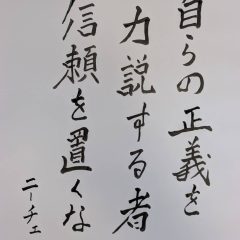 自らの正義を
力説する者
信頼を置くな
ニーチェ